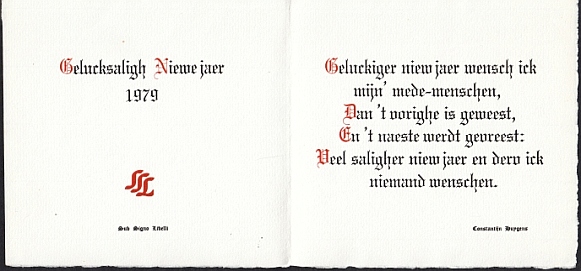 Gelucksaligh Niewe jaer
1979
SSL
Sub Signo Libelli
Geluckiger niew jaer wensch ick
mijn' mede-menschen,
Dan 't vorighe is geweest,
En 't naeste werdt gevreest:
Veel saligher niew jaer en derv ick
niemand wenschen.
Constantijn Huygens